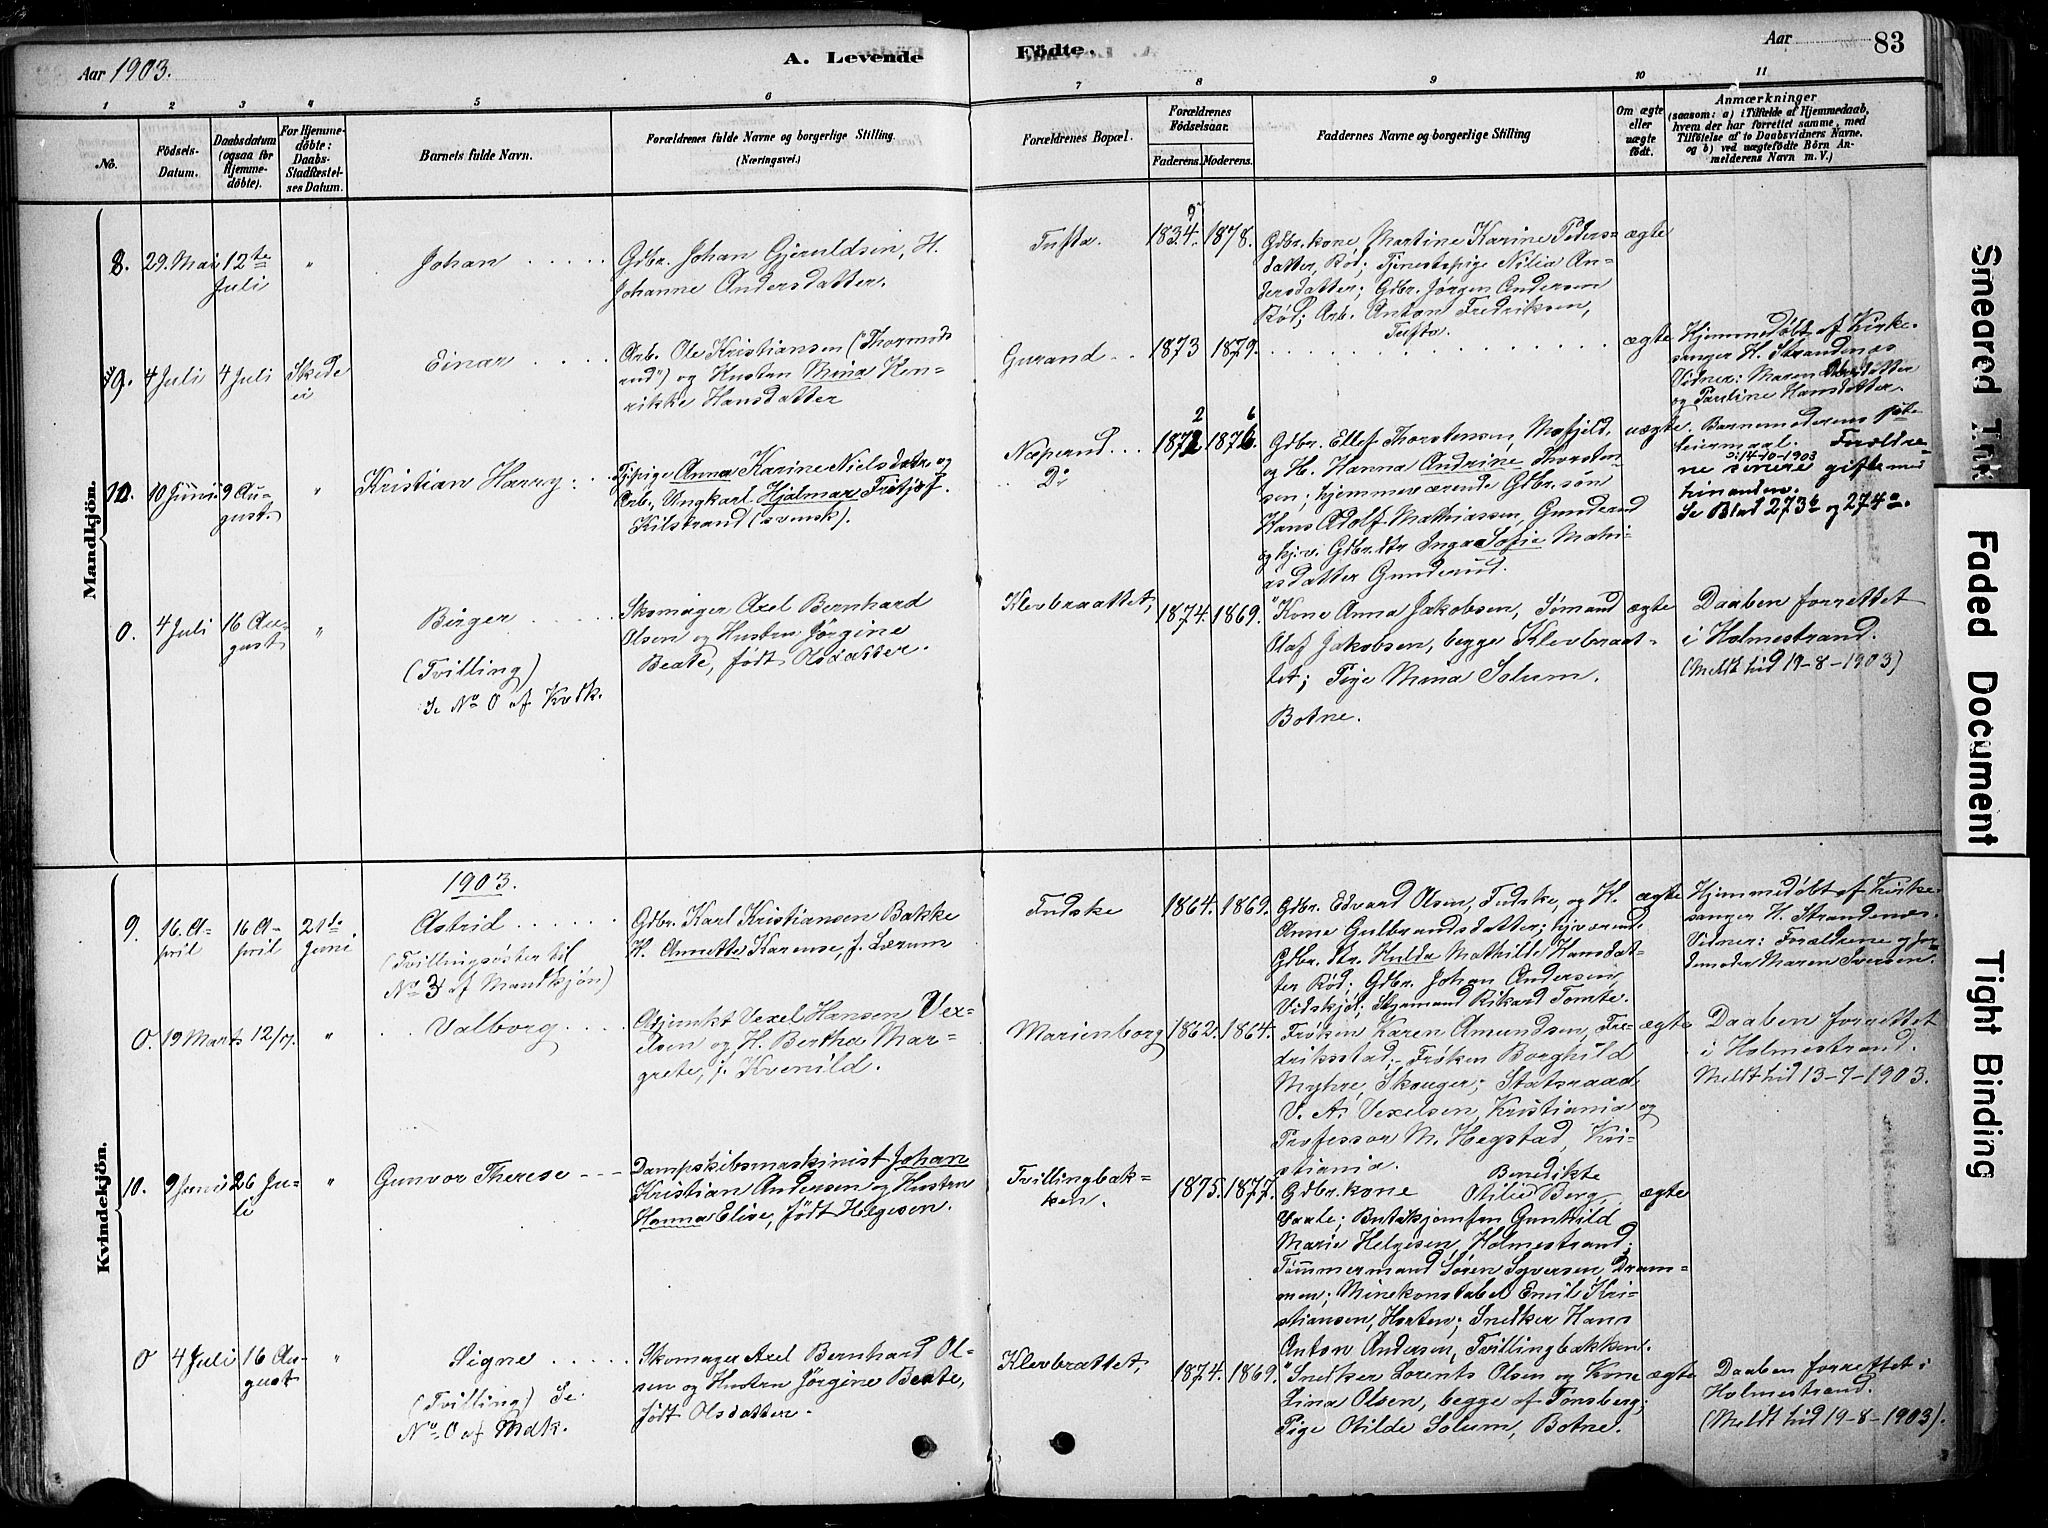 Aar 1903.
A. Levende
Födte.
Aar
83
1
2
3
4
5
6
7
8
9
10
11
No.
Födsels-
Datum.
Daabsdatum
(ogsaa for
Hjemme-
döbte).
For Hjemme-
döbte:
Daabs-
Stadfæstel-
ses Datum.
Barnets fulde Navn.
Forældrenes fulde Navne og borgerlige Stilling.
(Næringsvei.)
Forældrenes Bopæl.
Forældrenes
Födselsaar.
Faderens.
Moderens.
Faddernes Navne og borgerlige Stilling
Om ægte
eller
uægte
födt.
Anmærkninger
(saasom: a) i Tilfælde af Hjemmedaab,
hvem der har forrettet samme, med
Tilføielse af to Daabsvidners Navne.
og b) ved uægtefödte Börn An-
melderens Navn m. V.)
Mandkjön.
8.
29. Mai
12te
Juli
"
Johan
Gdbr. Johan Gjeruldsen, H.
Johanne Andersdatter.
Tufta.
1834.
1878.
Gdbr.kone, Martine Karine Peders-
datter, Rød; Tjenestepige Nilia An-
dersdatter; Gdbr. Jørgen Andersen
Rød; Arb. Anton Fredriksen,
Tufta.
ægte
9.
4 Juli
4 Juli
Skede
ei
Einar
Arb. Ole Kristiansen (Thormods
rud") og Hustru Mina Hen-
rikke Hansdatter
Gurand
1873
1879.
ægte
Hjemmedøbt af Kirke-
sanger H. Strandenæs
Vidner: Maren Olesdatter
og Pauline Hansdatter.
10 Juni
9 Au-
gust.
"
Kristian Harry
Tj.pige Anna Karine Nielsdatr. og
Arb., Ungkarl Hjalmar Fritjof
Kilstrand (svensk).
Næperud
Do
2
1872
6
1876
Gdbr. Ellef Thorstensen, Mofjeld,
og H. Hanna Andrine Thorsten-
sen; hjemmeværende Gdbr.søn
Hans Adolf Mathiassen, Gunderud
og hjv. Gdbr.dtr Inga Sofie Mathi-
asdatter Gunderud.
uægte.
Barnemoderens 1ste
leiermaal. Forældre-
14-10-1903
ne senere gifte med
hinanden.
Se Blad 273b og 274a.
0.
4 Juli
16 Au-
gust
"
Birger
(Tvilling)
Se No 0 af Kvdk.
Skomager Axel Bernhard
Olsen og Hustru Jørgine
Beate, født Olsdatter.
Klevbrattet,
1874.
1869.
Kone Anna Jakobsen, Sømand
Olaf Jakobsen, begge Klevbraat-
tet; Pige Mina Solum.
Botne.
ægte
Daaben forrettet
i Holmestrand.
(Meldt hid 19-8-1903)
Kvindekjön.
1903.
9.
16. A-
pril
16 A-
pril
21de
Juni
Astrid
(Tvillingsøster til
No 3 af Mandkjøn)
Gdbr. Karl Kristiansen Bakke
H. Annette Karense, f. Lærum
Fudske
1864.
1869.
Gdbr. Edvard Olsen, Fudske, og H.
Anne Gulbrandsdatter; hjværende
Gdbr. dtr. Hulda Mathilde Hansdat-
ter Rød; Gdbr. Johan Andersen,
Vidskjøl; Styrmand Rikard Tomte.
ægte
Hjemmedøbt af Kirke-
sanger H. Strandenæs.
Vidner: Forældrene og Jor-
demoder Maren Iversen.
0.
19 Marts
12/7.
"
Valborg
Adjunkt Vexel Hansen Vex-
elsen og H. Bertha Mar-
grete, f. Kvenild.
Marienborg
1862.
1864.
Frøken Karen Amundsen, Fre-
driksstad; Frøken Borghild
Myhre, Skouger; Statsraad
V. A. Vexelsen, Kristiania og
Professor M. Hegstad, Kri-
stiania.
ægte
Daaben forrettet
i Holmestrand.
Meldt hid 13-7-1903.
10.
9 Juni
26 Ju-
li
"
Gunvor Therese
Dampskibsmaskinist Johan
Kristian Andersen og Hustru
Hanna Elise, født Helgesen.
Tvillingbak-
ken.
1875.
1877.
Benedikte
Gdbr.kone Otilie Berg,
Butikjomfru Gunhild
Marie Helgesen, Holmestrand;
Tømmermand Søren Syversen, Dram-
men; Minekonstabel Emil Kri-
stiansen, Horten; Snedker Hans
Anton Andersen, Tvillingbakken.
ægte
0
4 Juli
16 Au-
gust
"
Signe
(Tvilling) Se
No. 0 af Mdk.
Skomager Axel Bernhard Ol-
sen og Hustru Jørgine Beate,
født Olsdatter.
Klevbrattet,
1874.
1869.
Snedker Lorents Olsen og Kone
Lina Olsen, begge af Tønsberg;
Pige Otilde Solum, Botne.
ægte
Daaben forrettet i
Holmestrand.
(Meldt hid 19-8-1903).
Smeared Ink
Faded Document
Tight Binding